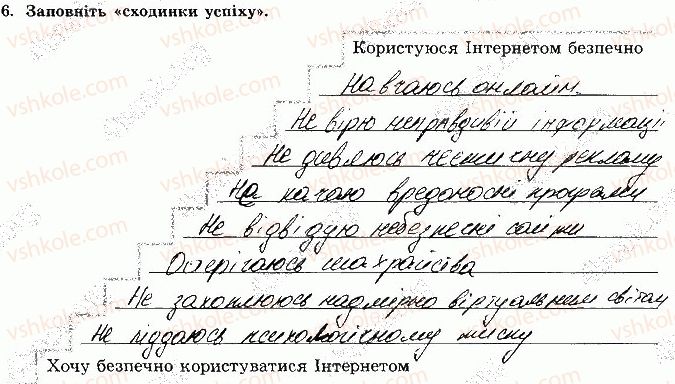 6. Заповніть «сходинки успіху».
Користуюся Інтернетом безпечно
Навчаюсь онлайн.
Не вірю неправдивій інформації
Не дивлюсь неетичну рекламу
На качаю вредоносні програми
Не відвідую небезпесні сайти
Остерігаюсь шахрайства
Не захоплююсь надмірно віртуальним світом
Не піддаюсь психологічному тиску
Хочу безпечно користуватися Інтернетом